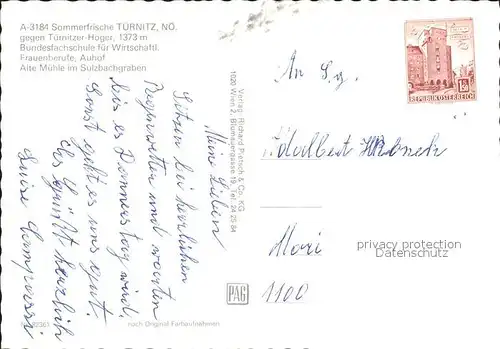 A-3184 Sommerfrische TÜRNITZ, NÖ.
gegen Türnitzer-Höger, 1373 m
Bundesfachschule für Wirtschaftl.
Frauenberufe, Auhof
Alte Mühle im Sulzbachgraben
Meine Lieben
Sitzen bei herrlichen
Regenwetter und warten
bis es Donnerstag wird.
Sonst geht es uns gut.
Es grüßt herzlich
Luise
nach Original Farbaufnahmen
Verlag: Richard Pietsch & Co. KG
1020 Wien 2, Blumauergasse 19, Tel. 24 26 84
PAG
REPUBLIK ÖSTERREICH
An Sg.
Adalbert
1100
privacy protection
Datenschutz